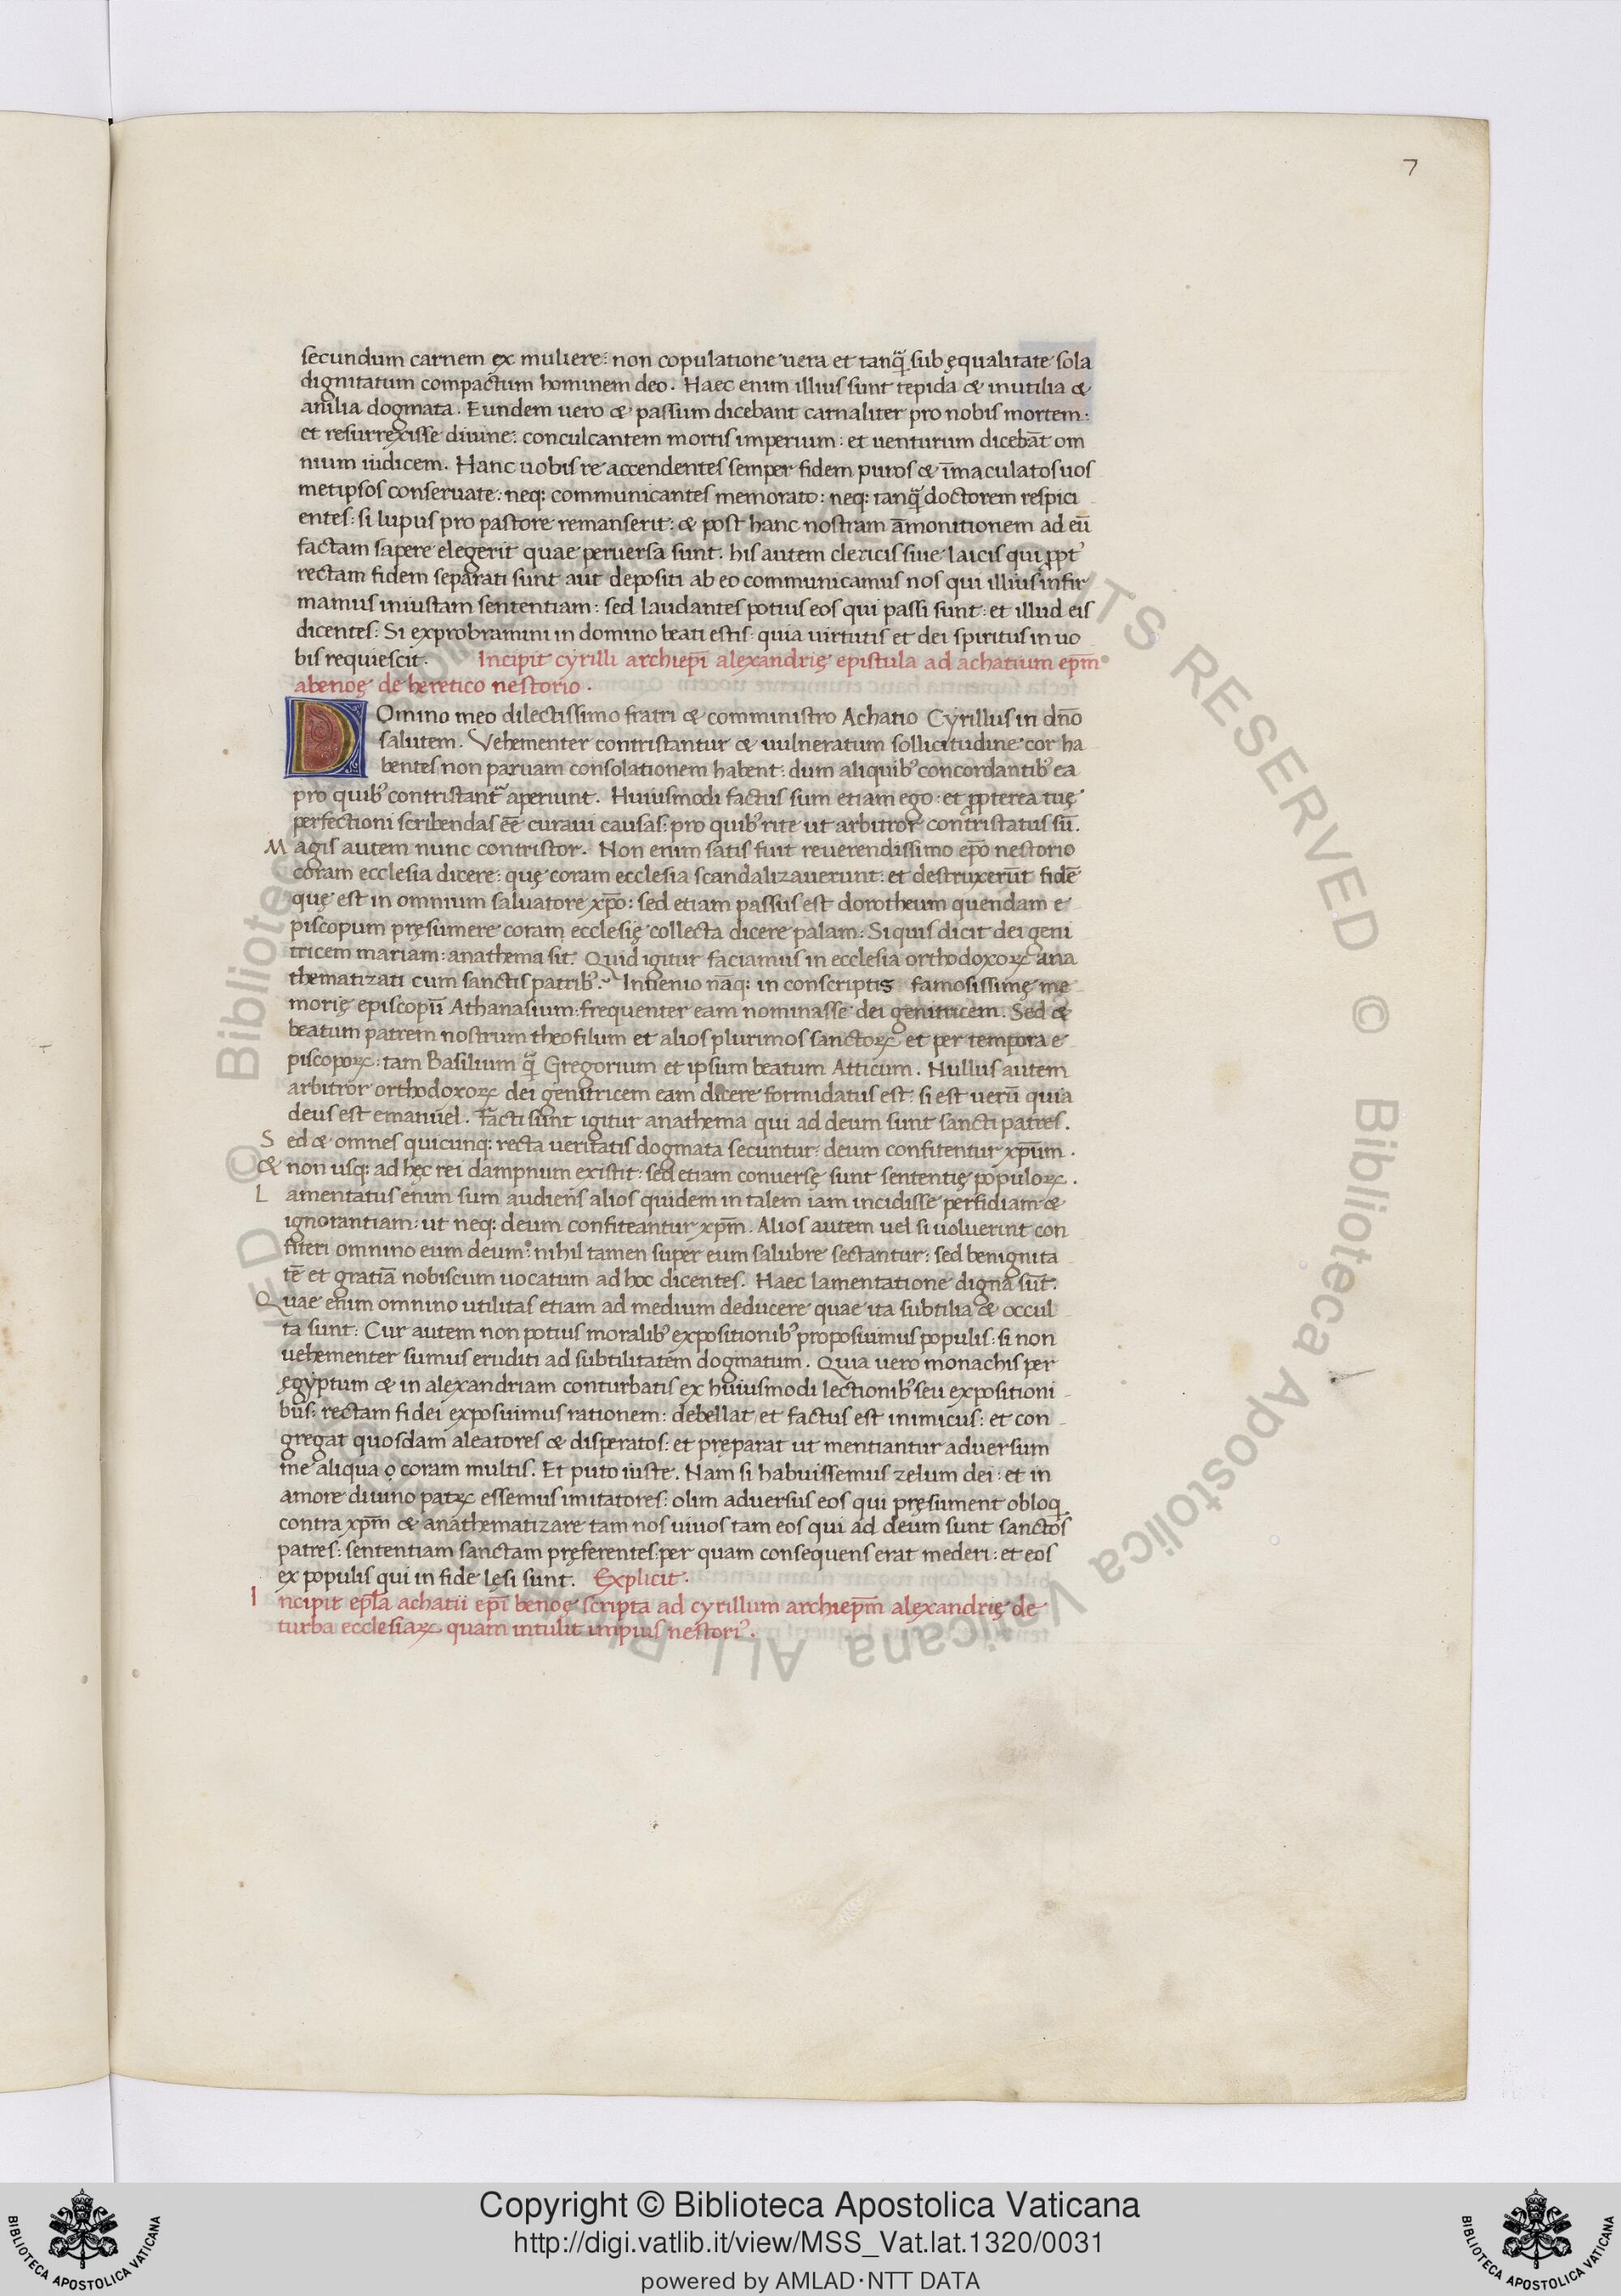 7
secundum carnem ex muliere: non copulatione uera et tanq̃ sub ęqualitate sola
dignitatum compactum hominem deo. Haec enim illius sunt tepida & inutilia &
anilia dogmata. Eundem uero & passum dicebant carnaliter pro nobis mortem:
et resurrexisse diuine: conculcantem mortis imperium: et uenturum dicebāt om
nium iudicem. Hanc uobis re accendentes semper fidem puros & īmaculatos uos
metipsos conseruate: neq: communicantes memorato: neq: tanq̃ doctorem respici
entes: si lupus pro pastore remanserit: & post hanc nostram āmonitionem ad eū
factam sapere elegerit quae peruersa sunt. his autem clericis siue laicis qui ꝓpt̉
rectam fidem separati sunt aut depositi ab eo communicamus nos qui illius infir
mamus iniustam sententiam: sed laudantes potius eos qui passi sunt: et illud eis
dicentes: Si exprobramini in domino beati estis: quia uirtutis et dei spiritus in uo
bis requiescit. Incipit cyrilli archiepī alexandrię epistula ad achatium epm̄
abenoę de heretico nestorio.
DOmino meo dilectissimo fratri & comministro Achatio Cyrillus in dn̄o
salutem. Vehementer contristantur & uulneratum sollicitudine cor ha
bentes non paruam consolationem habent: dum aliquib᾽ concordantib᾽ ea
pro quib᾽ contristant᷑ aperiunt. Huiusmodi factus sum etiam ego: et ꝓpterea tuę
perfectioni scribendas eē curaui causas: pro quib᾽ rite ut arbitror contristatus sū.
Magis autem nunc contristor. Non enim satis fuit reuerendissimo ep̄o nestorio
coram ecclesia dicere: quę coram ecclesia scandalizauerunt: et destruxerūt fidē
quę est in omnium saluatore xp̄o: sed etiam passus est dorotheum quendam e
piscopum pręsumere coram ecclesię collecta dicere palam: Si quis dicit dei geni
tricem mariam: anathema sit. Quid igitur faciamus in ecclesia orthodoxoꝝ ana
thematizati cum sanctis patrib᾽. Inuenio nāq: in conscriptis famosissimę me
morię episcopū Athanasium: frequenter eam nominasse dei genitricem. Sed &
beatum patrem nostrum theofilum et alios plurimos sanctoꝝ et per tempora e
piscopoꝝ: tam Basilium q̃ Gregorium et ipsum beatum Atticum. Nullus autem
arbitror orthodoxoꝝ dei genitricem eam dicere formidatus est: si est uerū quia
deus est emanuel. Facti sunt igitur anathema qui ad deum sunt sancti patres.
Sed & omnes quicunq: recta ueritatis dogmata secuntur: deum confitentur xp̄um.
& non usq: ad hęc rei dampnum existit: sed etiam conuersę sunt sententię populoꝝ.
Lamentatus enim sum audiens alios quidem in talem iam incidisse perfidiam &
ignorantiam: ut neq: deum confiteantur xp̄m. Alios autem uel si uoluerint con
fiteri omnino eum deum: nihil tamen super eum salubre sectantur: sed benignita
tē et gratiā nobiscum uocatum ad hoc dicentes. Haec lamentatione digna sūt.
Quae enim omnino utilitas etiam ad medium deducere quae ita subtilia & occul
ta sunt: Cur autem non potius moralib᾽ expositionib᾽ proposuimus populis: si non
uehementer sumus eruditi ad subtilitatem dogmatum. Quia uero monachis per
ęgyptum & in alexandriam conturbatis ex huiusmodi lectionib᾽ seu expositioni
bus: rectam fidei exposuimus rationem: debellat et factus est inimicus: et con
gregat quosdam aleatores & disperatos: et pręparat ut mentiantur aduersum
me aliqua o coram multis. Et puto iuste. Nam si habuissemus zelum dei: et in
amore diuino patꝝ essemus imitatores: olim aduersus eos qui pręsument obloq
contra xp̄m & anathematizare tam nos uiuos tam eos qui ad deum sunt sanctos
patres: sententiam sanctam pręferentes: per quam consequens erat mederi: et eos
ex populis qui in fide lęsi sunt. Explicit.
Incipit epl̄a achatii epī benoę scripta ad cyrillum archiepm̄ alexandrię de
turba ecclesiaꝝ quam intulit impius nestori᾽.
Copyright © Biblioteca Apostolica Vaticana
http://digi.vatlib.it/view/MSS_Vat.lat.1320/0031
powered by AMLAD·NTT DATA
BIBLIOTECA APOSTOLICA VATICANA
BIBLIOTECA APOSTOLICA VATICANA